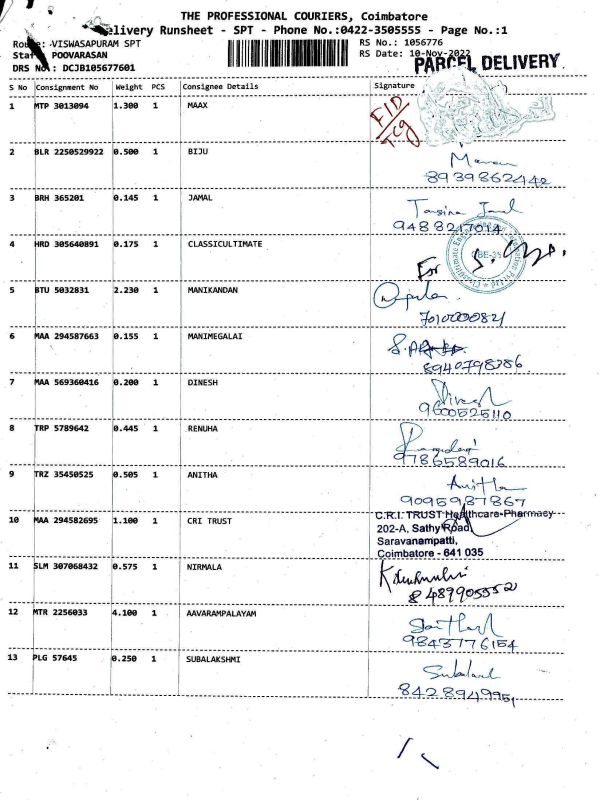 THE PROFESSIONAL COURIERS, Coimbatore
Delivery Runsheet - SPT - Phone No.:0422-3505555 - Page No.:1
Route: VISWASAPURAM SPT RS No.: 1056776
Staff: POOVARASAN RS Date: 10-Nov-2022
DRS No.: DCJB105677601 PARCEL DELIVERY
S No Consignment No Weight PCS Consignee Details Signature
1 MTP 3013094 1.300 1 MAAX
2 BLR 2250529922 0.500 1 BIJU
8939862442
3 BRH 365201 0.145 1 JAMAL
9488217014
4 HRD 305640891 0.175 1 CLASSICULTIMATE
For
5 BTU 5032831 2.230 1 MANIKANDAN
7010000821
6 MAA 294587663 0.155 1 MANIMEGALAI
8940798386
7 MAA 569360416 0.200 1 DINESH
Dinesh
9600525110
8 TRP 5789642 0.445 1 RENUHA
9786589016
9 TRZ 35450525 0.505 1 ANITHA
Anitha
9095987867
10 MAA 294582695 1.100 1 CRI TRUST
C.R.I. TRUST Healthcare-Pharmacy
202-A, Sathy Road
Saravanampatti,
Coimbatore - 641 035
11 SLM 307068432 0.575 1 NIRMALA
8489905552
12 MTR 2256033 4.100 1 AAVARAMPALAYAM
9843776154
13 PLG 57645 0.250 1 SUBALAKSHMI
8428949951